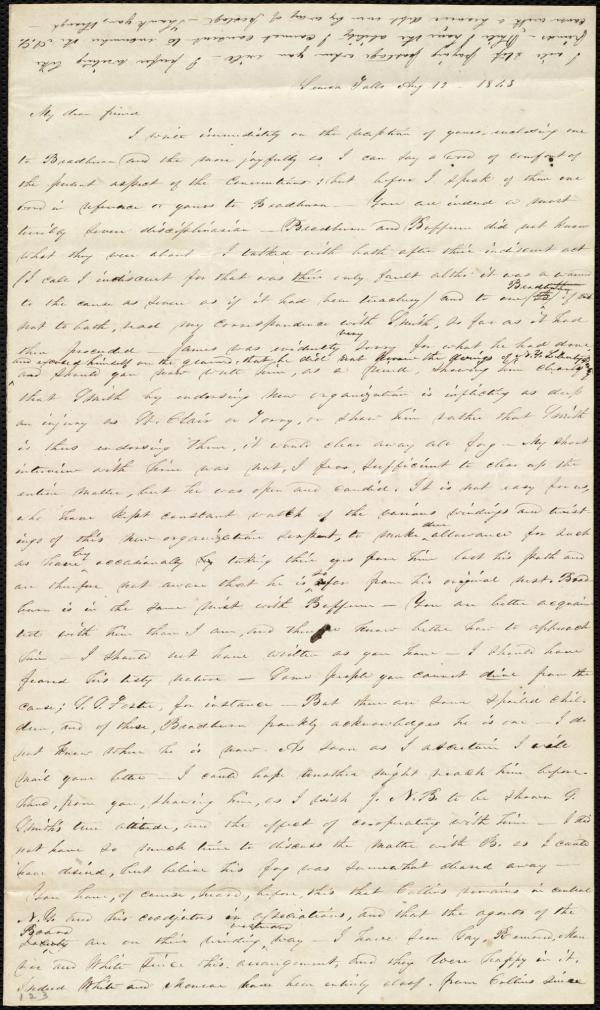 I will stop paying postage when you write - I prefer writing like
friends - While I have the ability I cannot consent to encumber the A.S.
cause with a heavier debt even by way of postage - Thank you though
Seneca Falls Aug 12 - 1843
My dear friend
I write immediately on the reception of yours, inclosing one
to Bradburn and the more joyfully as I can say a word of comfort of
the present aspect of the Conventions; but before I speak of them one
word in reference to yours to Bradburn - You are indeed a most
terribly severe disciplinarian - Bradburn and Buffum did not know
what they were about - I talked with both after their indiscreet act
(I call it indiscreet for that was their only fault altho' it was a wound
to the cause as severe as if it had been treachery) and to one Bradburn if
not to both, read my correspondence with Smith, so far as it had
then proceeded - James was evidently very sorry for what he had done,
and excused himself on the ground, that he did not know the doings of N.Y. Liberty
and should you now write him, as a friend, showing him clearly
that Smith by endorsing new organization is inflicting as deep
an injury as St. Clair or Torrey, or show him rather that Smith
is thus endorsing them, it would clear away all fog - My short
interview with him was not, I fear, sufficient to clear up the
entire matter, but he was open and candid. It is not easy for us,
who have kept constant watch of the various windings and twist
ings of this new organization serpent, to make due allowance for such
as have by occasionally taking their eyes from him lost his path and
are therefore not aware that he is so far from his original nest. Brad
burn is in the same mist with Buffum - (You are better acquain
ted with him than I am, and therefore know better how to approach
him - I should not have written as you have - I should have
feared his testy nature - Some people you cannot drive from the
cause; S. S. Foster, for instance - But there are some spoiled chil-
dren, and of these, Bradburn frankly acknowledges he is one - I do
not know where he is now. As soon as I ascertain I will
mail your letter - I could hope another might reach him before-
hand, from you, showing him, as I wish J. N. B. to be shown G.
Smith's true attitude, and the effect of cooperating with him - I did
not have so much time to discuss the matter with B. as I could
have desired, but believe his fog was somewhat cleared away -
You have, of course, heard, before this that Collins remains in central
N.Y. and his coadjutors in associations, and that the agents of the
Board Society are on their winding westward way - I have seen Gay, Remond, Mon
roe and White since this arrangement, and they were happy in it.
Indeed White and Monroe have been entirely aloof from Collins since
1 2 3